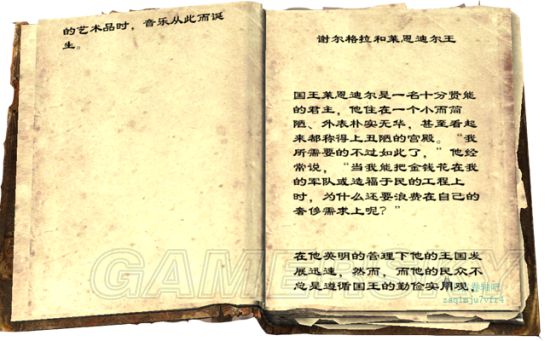 的艺术品时，音乐从此而诞
生。
谢尔格拉和莱恩迪尔王
国王莱恩迪尔是一名十分贤能
的君主，他住在一个小而简
陋、外表朴实无华，甚至看起
来都称得上丑陋的宫殿。“我
所需要的不过如此了，”他经
常说，“当我能把金钱花在我
的军队或造福于民的工程上
时，为什么还要浪费在自己的
奢侈需求上呢？”
在他英明的管理下他的王国发
展迅速，然而，而他的民众不
总是遵循国王的勤俭实用观，
GAMERSKY
zaq1mju7vfr4